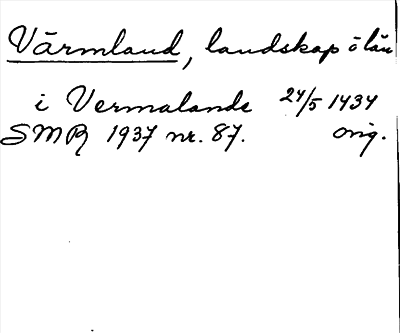 Värmland, landskap o län
i Vermalande 24/5 1434
SMR 1937 nr. 87. orig.